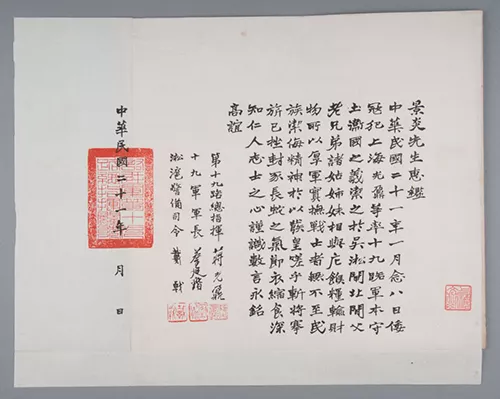 景炎先生惠鑑
中華民國二十一年一月念八日倭
寇犯上海光鼐等率十九路軍本守
土衛國之義禦之於吳淞閘北間父
老兄弟諸姑姊妹相與庀餱糧輸財
物所以厚軍實撫戰士者無不至民
族禦侮精神於以煥皇嗟乎斬將搴
旂已挫封豕長蛇之氣節衣縮食深
知仁人志士之心謹識數言永銘
高誼
第十九路總指揮 蔣光鼐
十九軍軍長 蔡廷鍇
淞滬警備司令 戴戟
中華民國二十一年 月 日